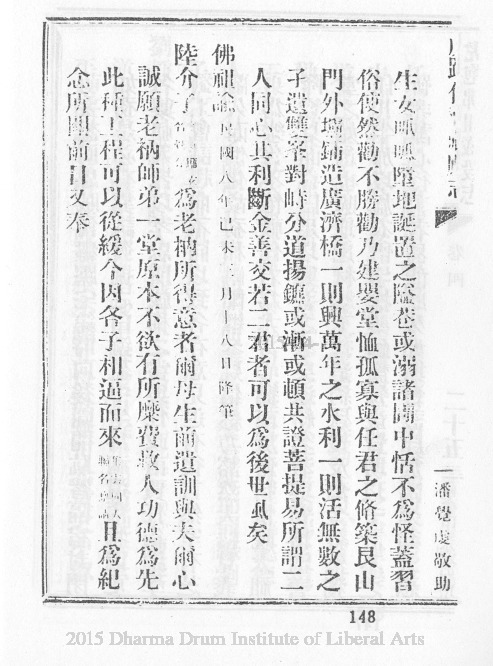 生女呱呱墮地誕置之隘巷或溺諸
中恬不爲怪蓋習
俗使然勸不勝勸乃建嬰堂恤孤寡與任君之脩築艮山
門外壩鋪造廣濟橋一則興萬年之水利一則活無數之
孑遺雙峯對峙分道揚鑣或漸或頓共證菩提易所謂二
人同心其利斷金善交若二君者可以爲後世
矣
佛祖諭
民國八年己未
月十八日降筆
陸介
爲老衲所得意者爾母生前遺訓與夫爾心
誠願老衲師弟一堂原本不欲有所糜費救人功德爲先
此種工程可以從緩今因各子相逼而來
且爲紀
念所
前日又奉
潘覺
敬助
卷四
二十五
148
2015 Dharma Drum Institute of Liberal Arts